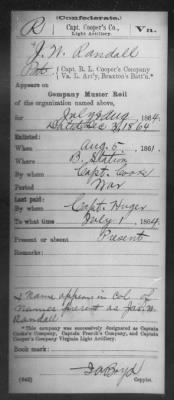 (Confederate.)
R Capt. Cooper's Co., Vn.
Light Artillery.
J. W. Randall
Pvt { Capt. R. L. Cooper's Company
Va. L. Art'y, Braxton's Batt'n.*
Appears on
Company Muster Roll
of the organization named above,
for July & Aug 1864.
Enlisted:
When Aug. 5, 1861.
Where B. Station
By whom Capt. Cook
Period War
Last paid:
By whom Capt. Huger
To what time July 1, 1864.
Present or absent Present
Remarks:
Name appears in col. of
names present as Jas. W.
Randall
*This company was successively designated as Captain
Cooke's Company, Captain French's Company, and Captain
Cooper's Company Virginia Light Artillery.
Book mark:
(642) Copyist.